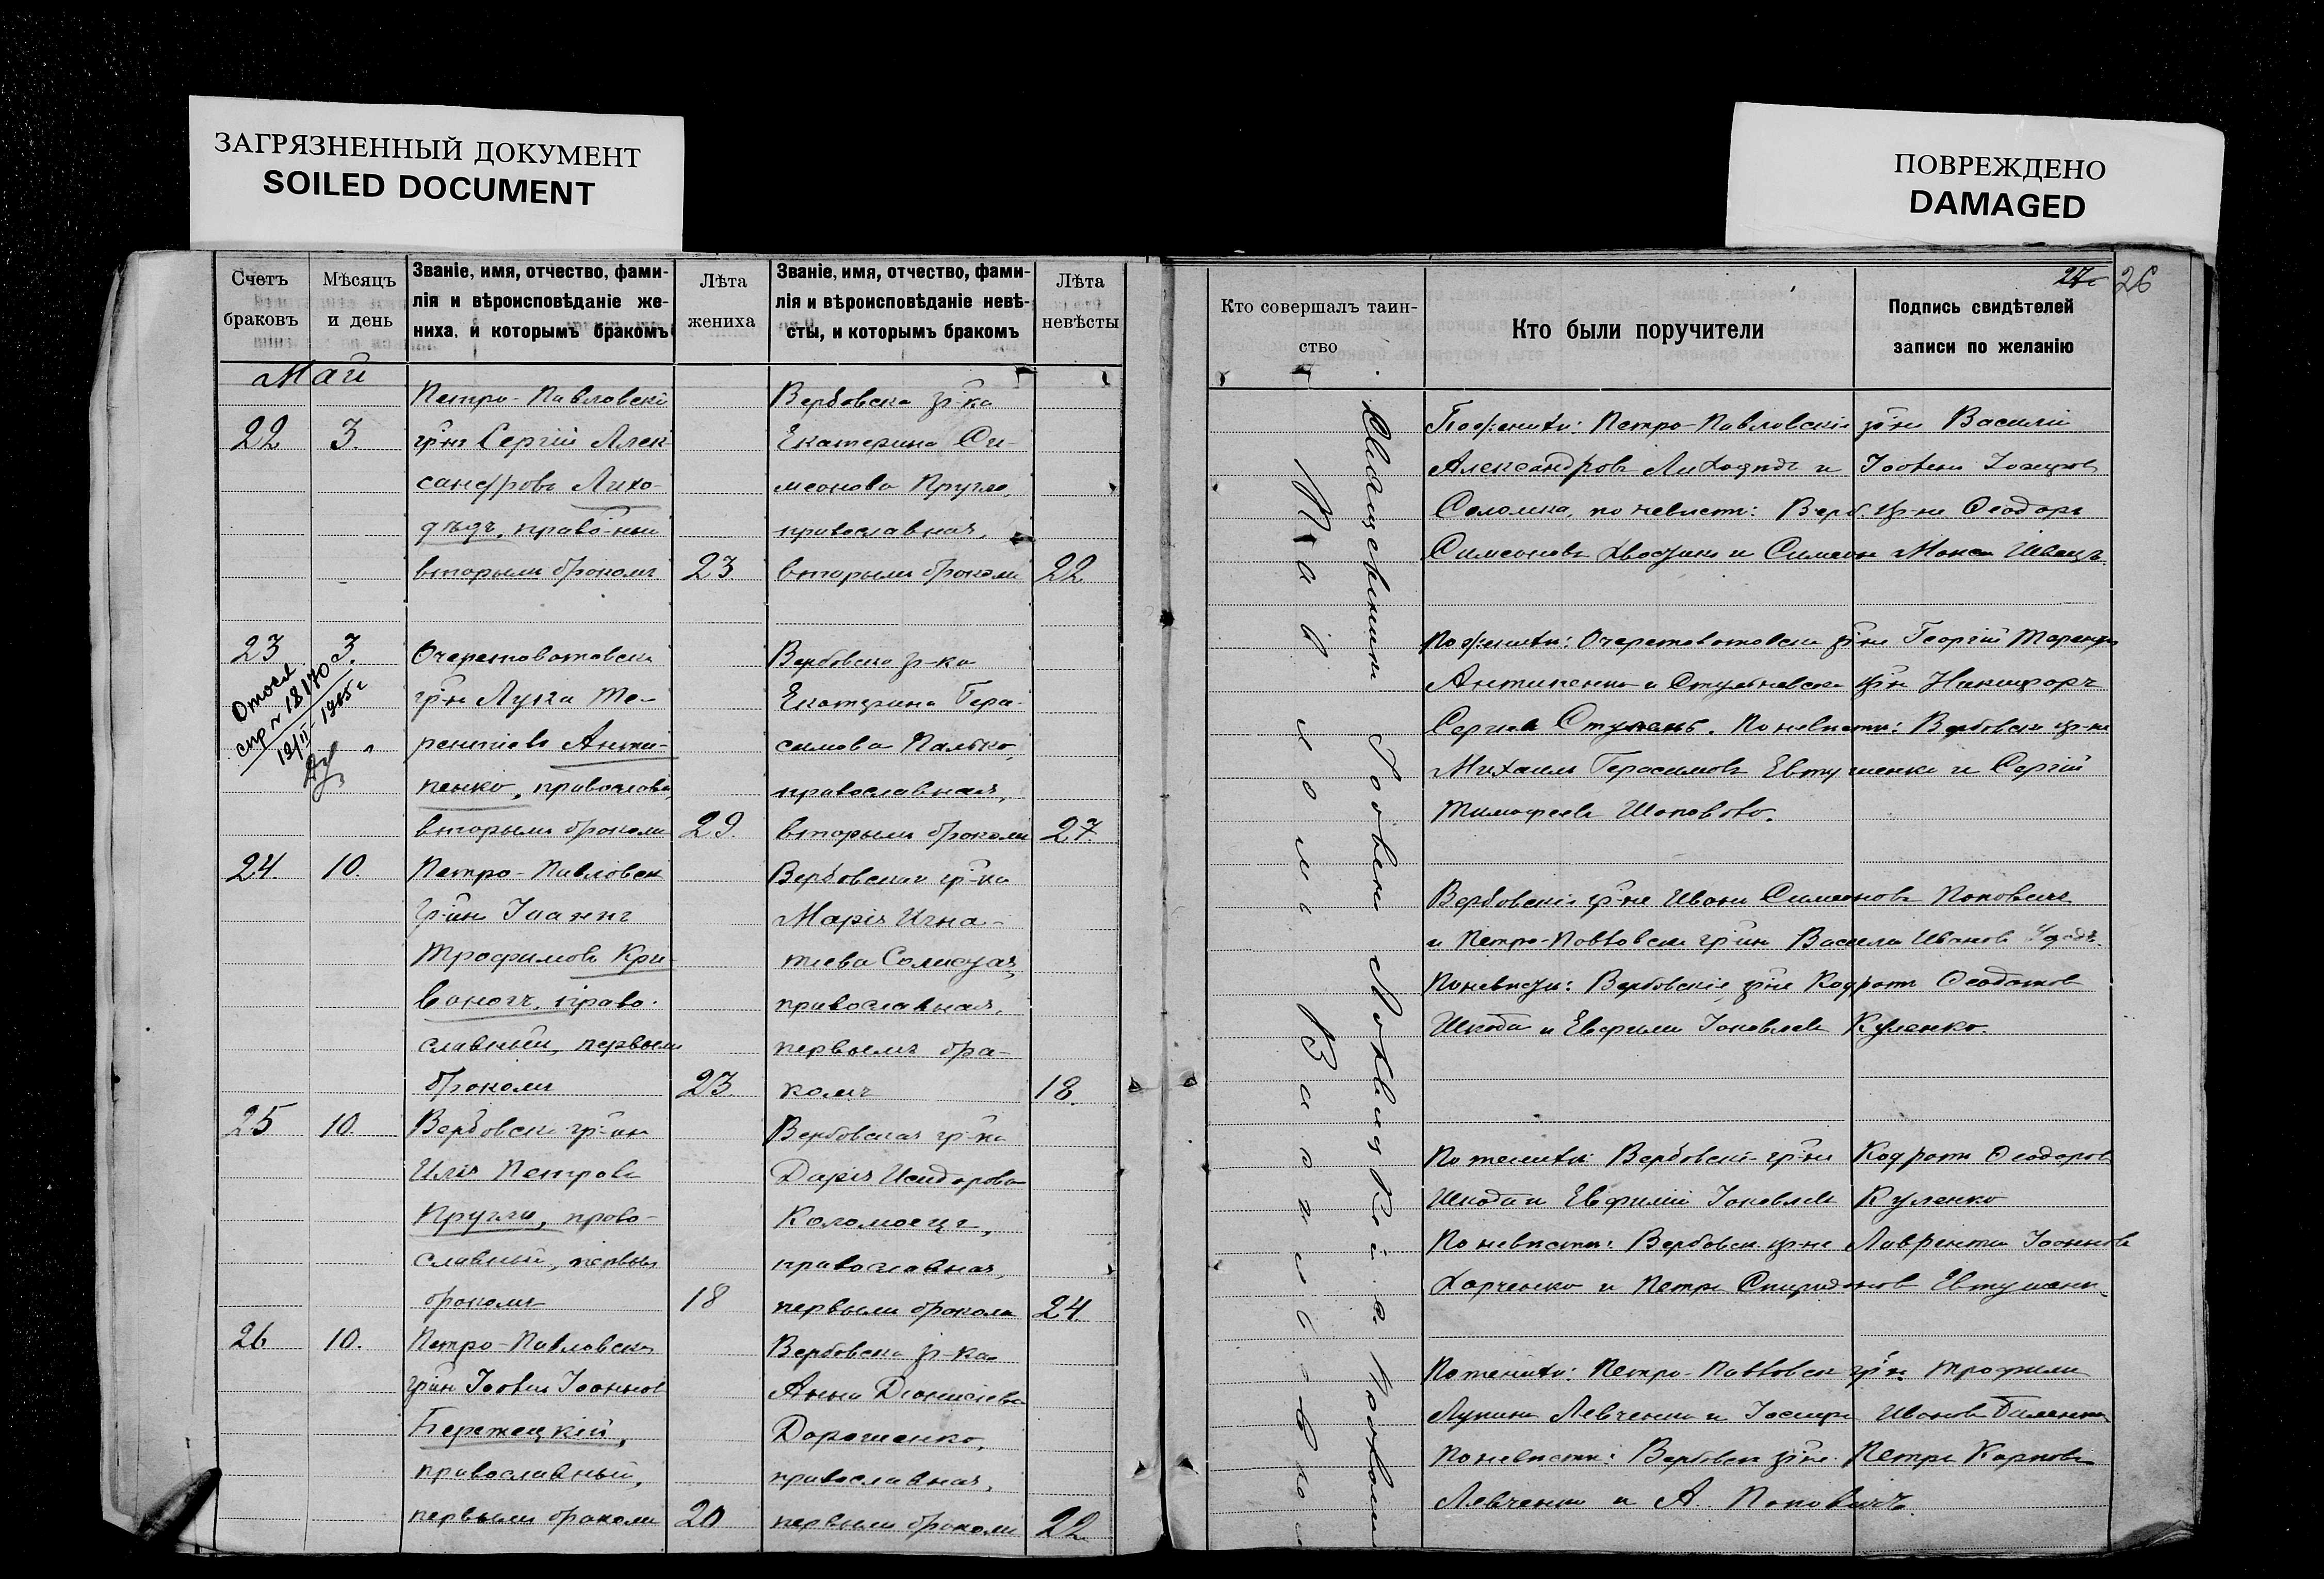 ЗАГРЯЗНЕННЫЙ ДОКУМЕНТ
SOILED DOCUMENT
ПОВРЕЖДЕНО
DAMAGED
Счетъ браковъ
Мѣсяцъ и день
Званіе, имя, отчество, фами-
лія и вѣроисповѣданіе же-
ниха, и которымъ бракомъ
Лѣта жениха
Званіе, имя, отчество, фами-
лія и вѣроисповѣданіе невѣ-
сты, и которымъ бракомъ
Лѣта невѣсты
Май
22 3.
Петро-Павловскій
гр-нъ Сергій Алек-
сандровъ Лихо-
дѣдъ, право-ный
вторымъ бракомъ
23
Вербовская гр-ка
Екатерина Си-
меонова Кругла,
православная,
вторымъ бракомъ
22
23 3.
18170
12/II 1925 г
Очеретоватовскій
гр-нъ Лука Те-
рентіевъ Анти-
пенко, православ.
вторымъ бракомъ
29.
Вербовская гр-ка
Екатерина Гера-
симова Палько,
православная,
вторымъ бракомъ
27.
24. 10.
Петро-Павловск
гр-нъ Іоаннъ
Трофимовъ Кри-
воногъ, право-
славный, первымъ
бракомъ
23.
Вербовская гр-ка
Марія Игна-
тіева
православная,
первымъ бра-
комъ
18.
25 10.
Вербовскій гр-нъ
Илія Петровъ
Круглый, право-
славный, первымъ
бракомъ
18
Вербовская гр-ка
Дарія Исидорова
Коломоецъ,
православная,
первымъ бракомъ
24
26 10.
Петро-Павловскій
гр-нъ Іовъ Іоанновъ
Бережецкій,
православный,
первымъ бракомъ
20
Вербовская гр-ка
Анна Діонисіева
Дорошенко,
православная,
первымъ бракомъ
22
26
Кто совершалъ таин-
ство
Кто были поручители
Подпись свидѣтелей
записи по желанію
Священникъ
Псаломщ
По женихѣ: Петро-Павловскіе гр-не Василій
Александровъ Лиходѣдъ и
Соломка, по невѣстѣ: Верб. гр-не Ѳеодоръ
Симеоновъ и Симеонъ Швецъ.
По женихѣ: Очеретоватовскій гр-нъ Георгій Терентіевъ
Антипенко и гр-нъ Никифоръ
Сергіевъ Ступакъ. По невѣстѣ: Вербовскіе гр-не
Михаилъ Герасимовъ Евтушенко и Сергій
Тимофеевъ Шаповалъ.
Вербовскій гр-не Иванъ Симеоновъ Поповичъ
и Петро-Павловскій гр-нъ Василій Ивановъ
По невѣстѣ: Вербовскіе гр-не Кодратъ
Шкода и Евфимій Іаковлевъ Куленко.
По женихѣ: Вербовскіе гр-не Кодратъ Ѳеодоровъ
Шкода и Евфимій Іаковлевъ Куленко
По невѣстѣ: Вербовск гр-не Лаврентій Іоанновъ
Харченко и Петръ Спиридоновъ Евтушенко.
По женихѣ: Петро-Павловск гр-не Трофимъ
Лукинъ Левченко и Іосифъ Ивановъ
По невѣстѣ: Вербовск гр-не Петръ Карповъ
Левченко и А. Поповичъ.